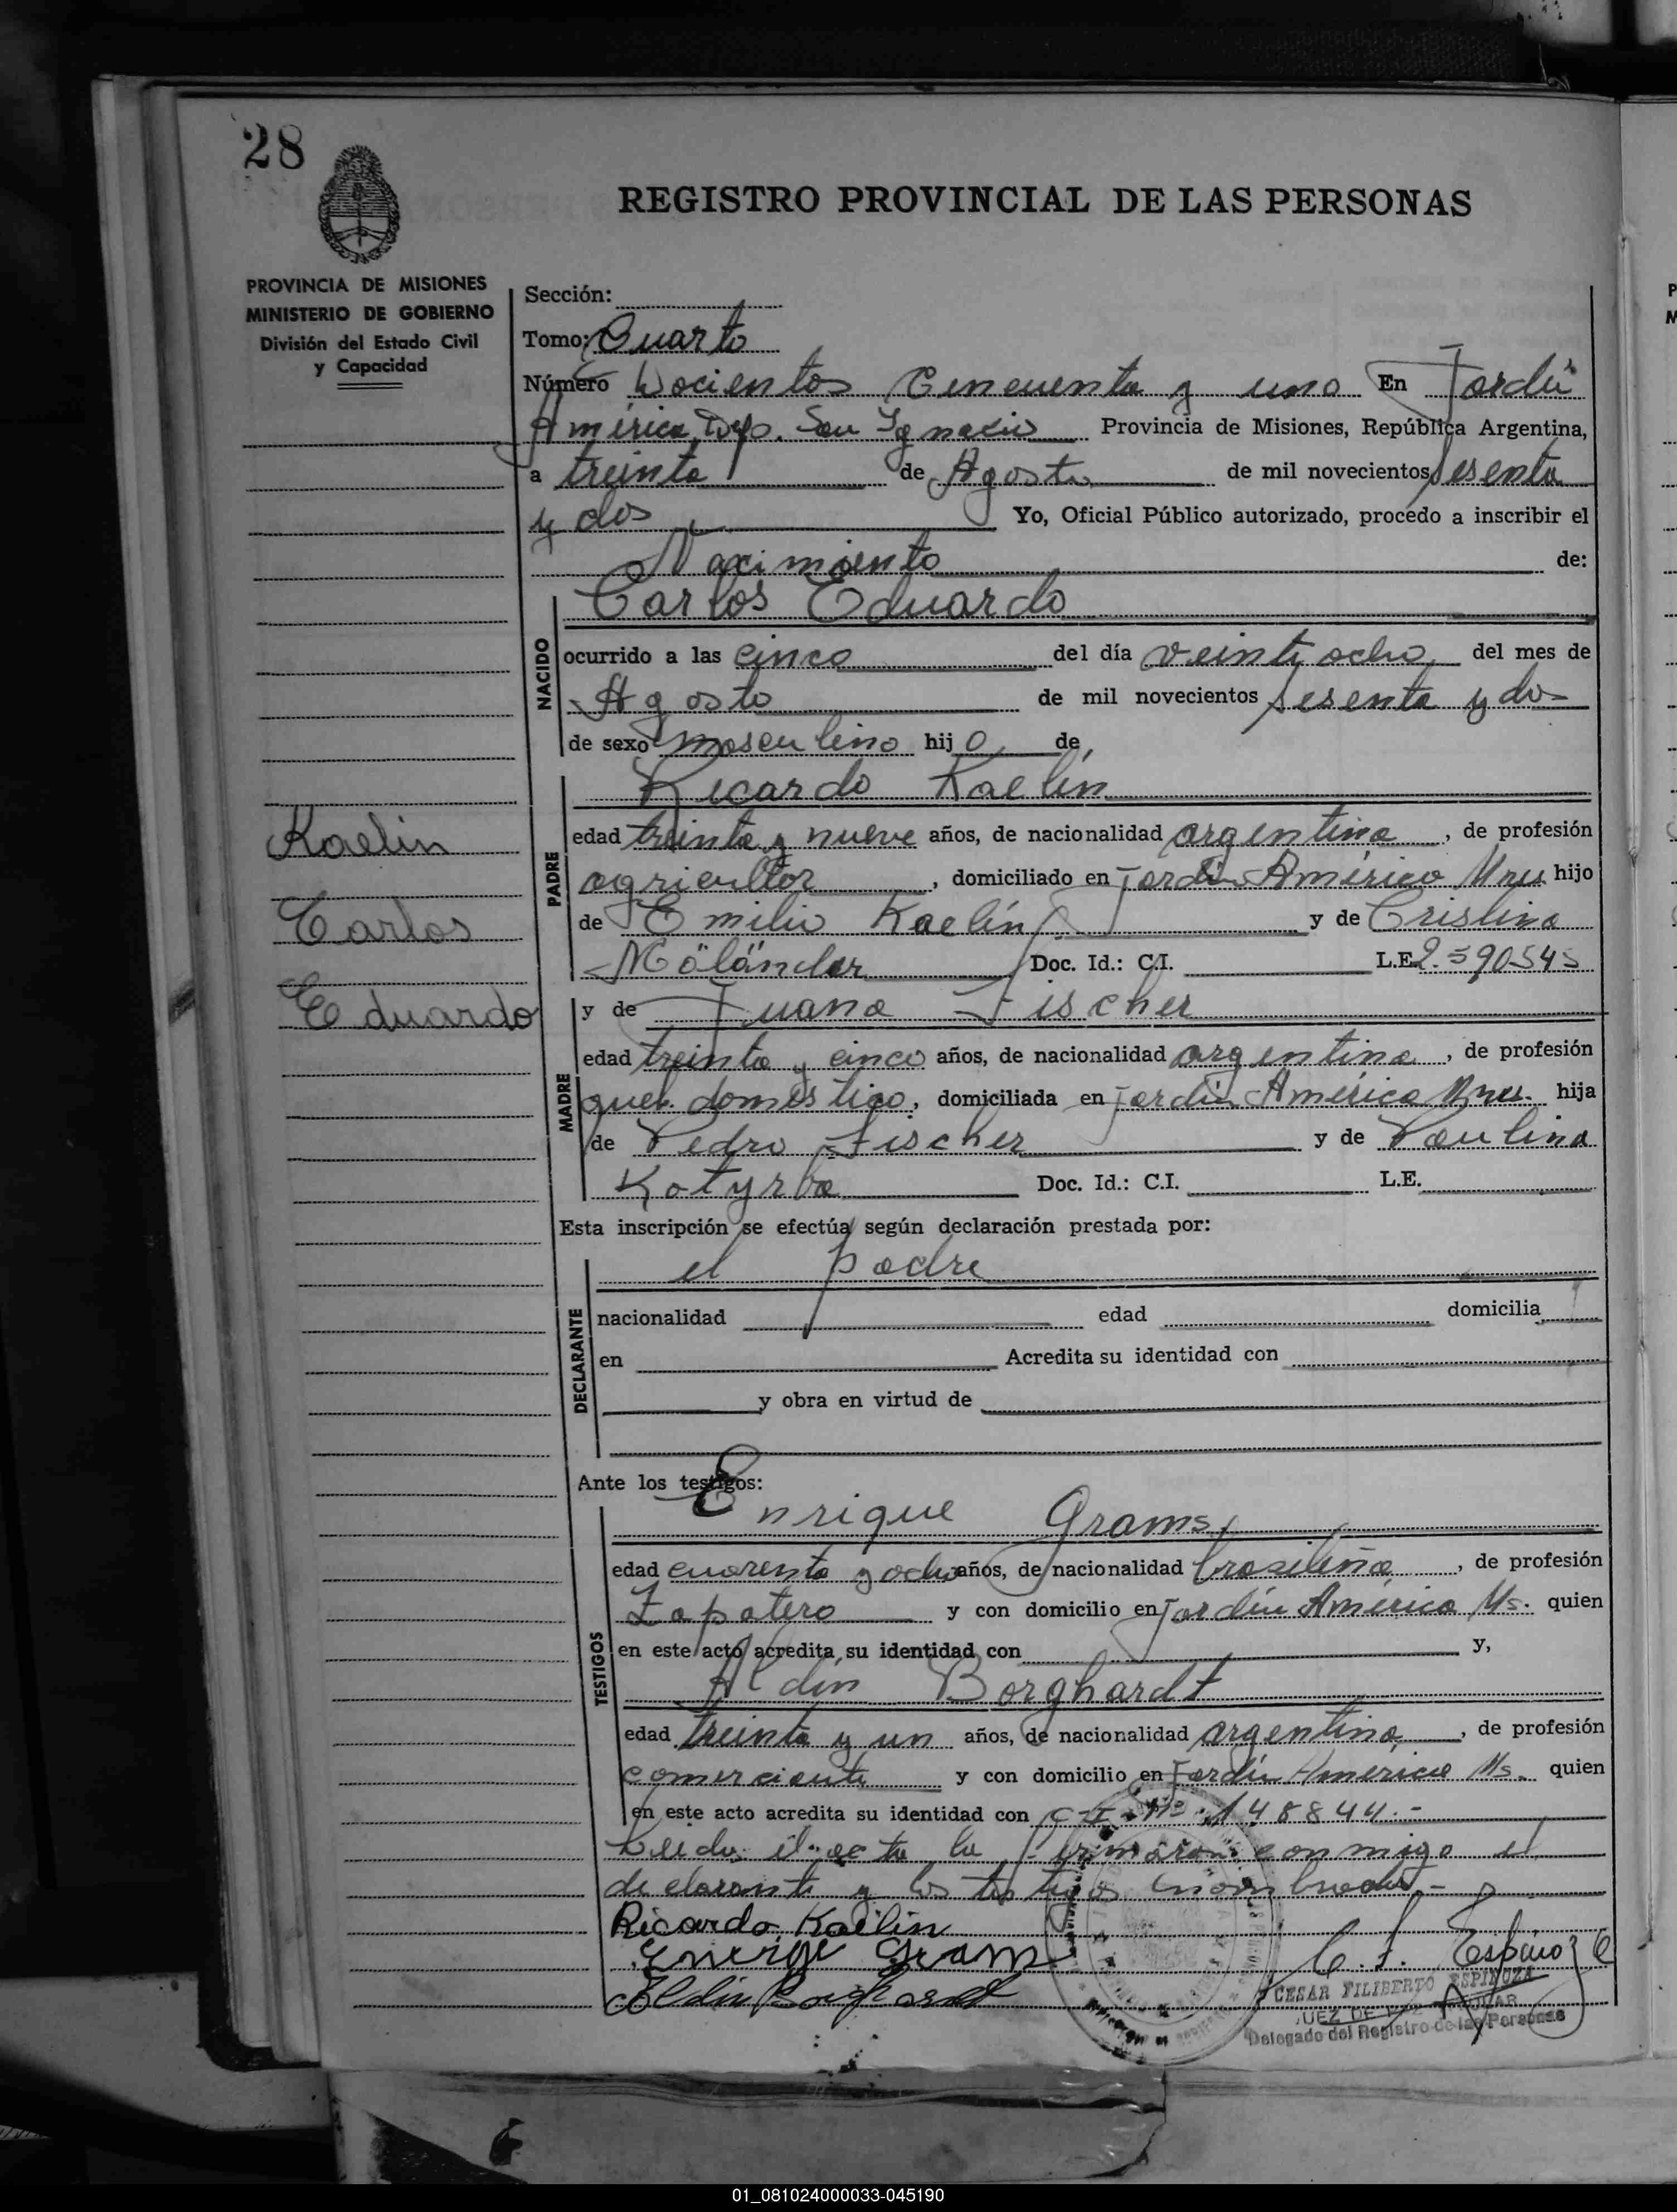 28
REGISTRO PROVINCIAL DE LAS PERSONAS
PROVINCIA DE MISIONES
MINISTERIO DE GOBIERNO
División del Estado Civil
y Capacidad
Sección:
Tomo: Cuarto
Número Docientos Cincuenta y uno En Jardín
América, Dep. San Ignacio Provincia de Misiones, República Argentina,
a treinta de Agosto de mil novecientos sesenta
y dos Yo, Oficial Público autorizado, procedo a inscribir el
Nacimiento de:
Carlos Eduardo
NACIDO
ocurrido a las cinco del día veintiocho del mes de
Agosto de mil novecientos sesenta y dos
de sexo masculino hijo de
Ricardo Kaelín
PADRE
edad treinta y nueve años, de nacionalidad argentina, de profesión
agricultor, domiciliado en Jardín América Mnes hijo
de Emilio Kaelín y de Cristina
Möländer Doc. Id.: C.I. L.E. 2.590545
Kaelin
Carlos
Eduardo
MADRE
y de Juana Fischer
edad treinta y cinco años, de nacionalidad argentina, de profesión
queh. domestico, domiciliada en Jardín América Mnes. hija
de Pedro Fischer y de Paulina
Kotyrba Doc. Id.: C.I. L.E.
Esta inscripción se efectúa según declaración prestada por:
el padre
DECLARANTE
nacionalidad edad domicilia
en Acredita su identidad con
y obra en virtud de
Ante los testigos:
Enrique Grams
TESTIGOS
edad cuarenta y ocho años, de nacionalidad brasileña, de profesión
Zapatero y con domicilio en Jardín América Ms. quien
en este acto acredita su identidad con y,
Aldin Borghardt
edad treinta y un años, de nacionalidad argentina, de profesión
comerciante y con domicilio en Jardín América Ms. quien
en este acto acredita su identidad con C.I. Nº 148844.-
Leida el acta la firmaron conmigo el
declarante y los testigos nombrados.-
Ricardo Kaelin
Enrique Gram
Aldin Borghardt
C. F. Espinoza
CESAR FILIBERTO ESPINOZA
JUEZ DE PAZ
Delegado del Registro de las Personas
01_081024000033-045190